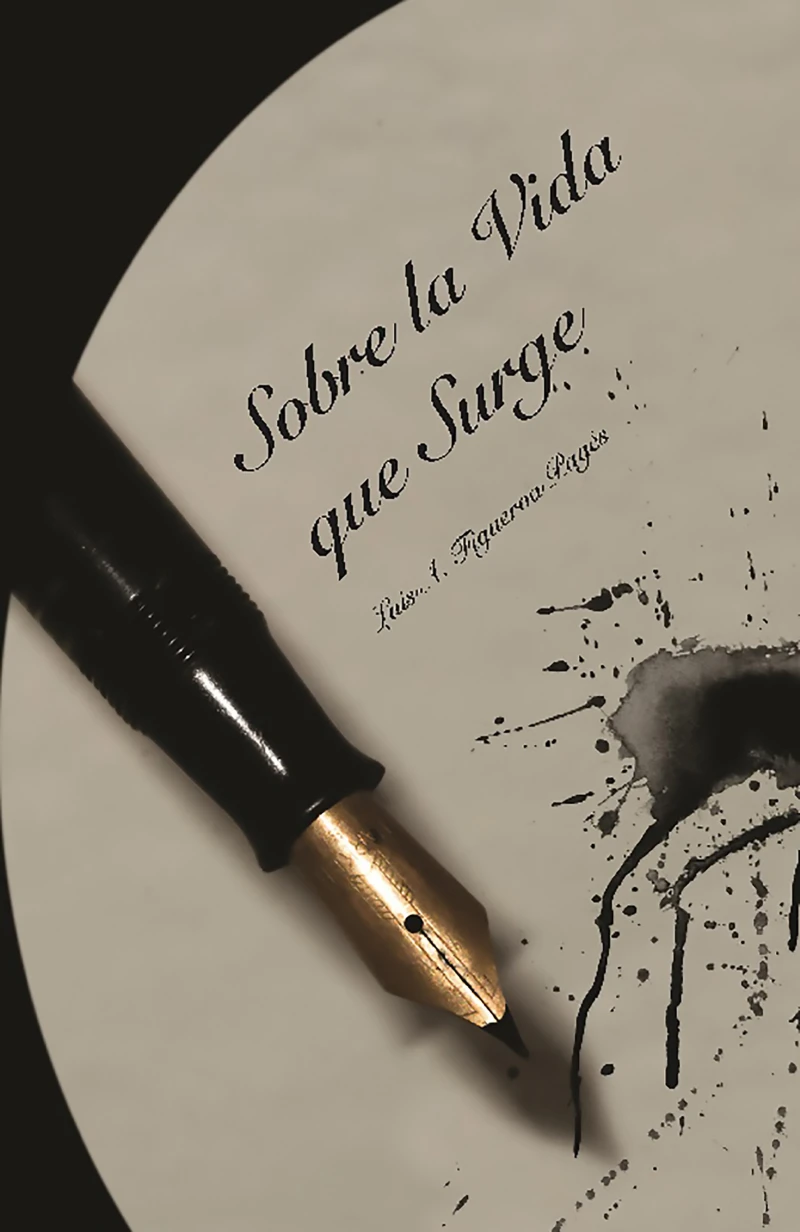 Sobre la Vida
que Surge
Luis A. Figueroa Pagés